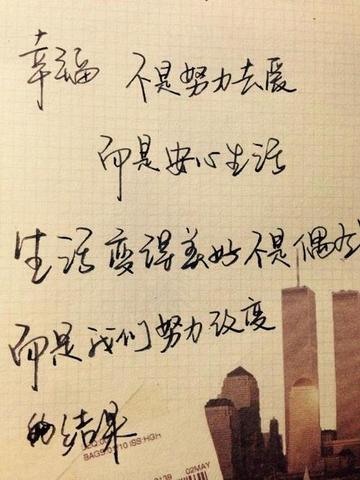 幸福 不是努力去爱
而是安心生活
生活变得美好不是偶然
而是我们努力改变
的结果
BAGS:0/10 ISS:HGH
02MAY